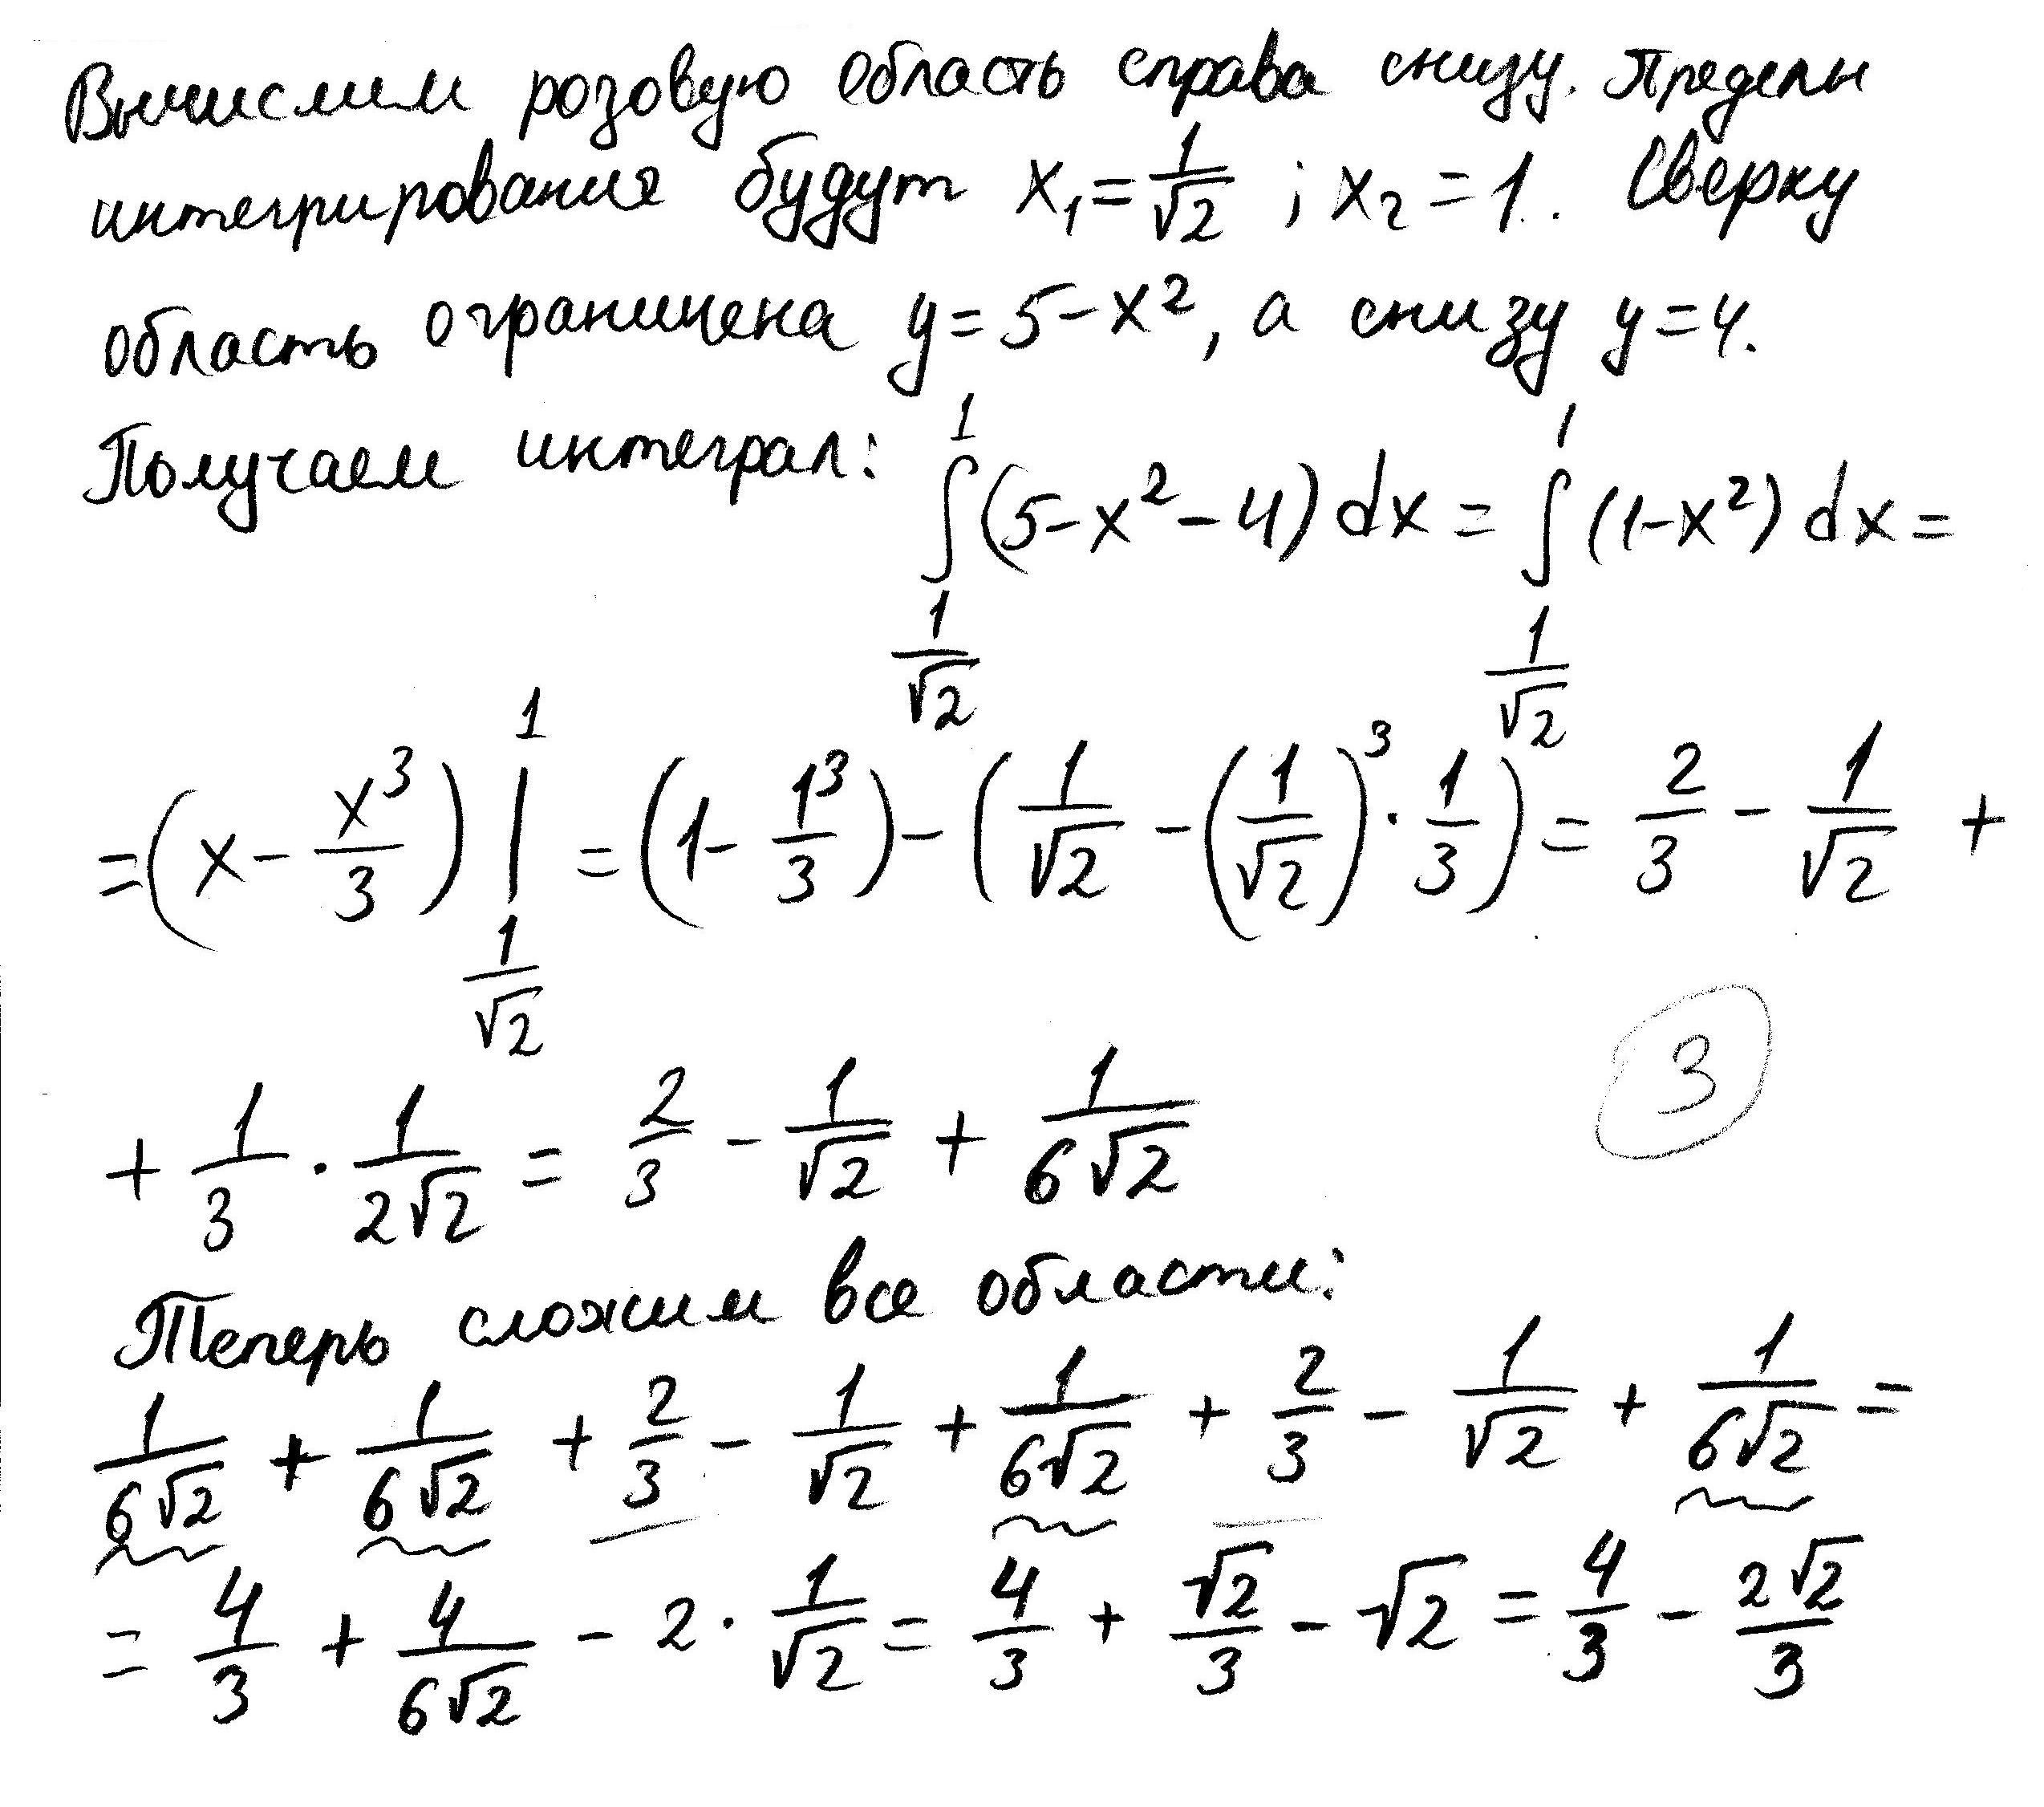 Вычислим розовую область справа снизу. Пределы
интегрирования будут x₁ = 1/√2 ; x₂ = 1. Сверху
область ограничена y = 5 - x², а снизу y = 4.
Получаем интеграл: ∫_{1/√2}^{1} (5 - x² - 4) dx = ∫_{1/√2}^{1} (1 - x²) dx =
= (x - x³/3) |_{1/√2}^{1} = (1 - 1³/3) - (1/√2 - (1/√2)³ · 1/3) = 2/3 - 1/√2 +
3
+ 1/3 · 1/(2√2) = 2/3 - 1/√2 + 1/(6√2)
Теперь сложим все области:
1/(6√2) + 1/(6√2) + 2/3 - 1/√2 + 1/(6√2) + 2/3 - 1/√2 + 1/(6√2) =
= 4/3 + 4/(6√2) - 2 · 1/√2 = 4/3 + √2/3 - √2 = 4/3 - 2√2/3